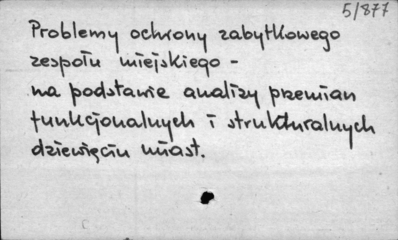 5/877
Problemy ochrony zabytkowego
zespołu miejskiego -
na podstawie analizy przemian
funkcjonalnych i strukturalnych
dziewięciu miast.